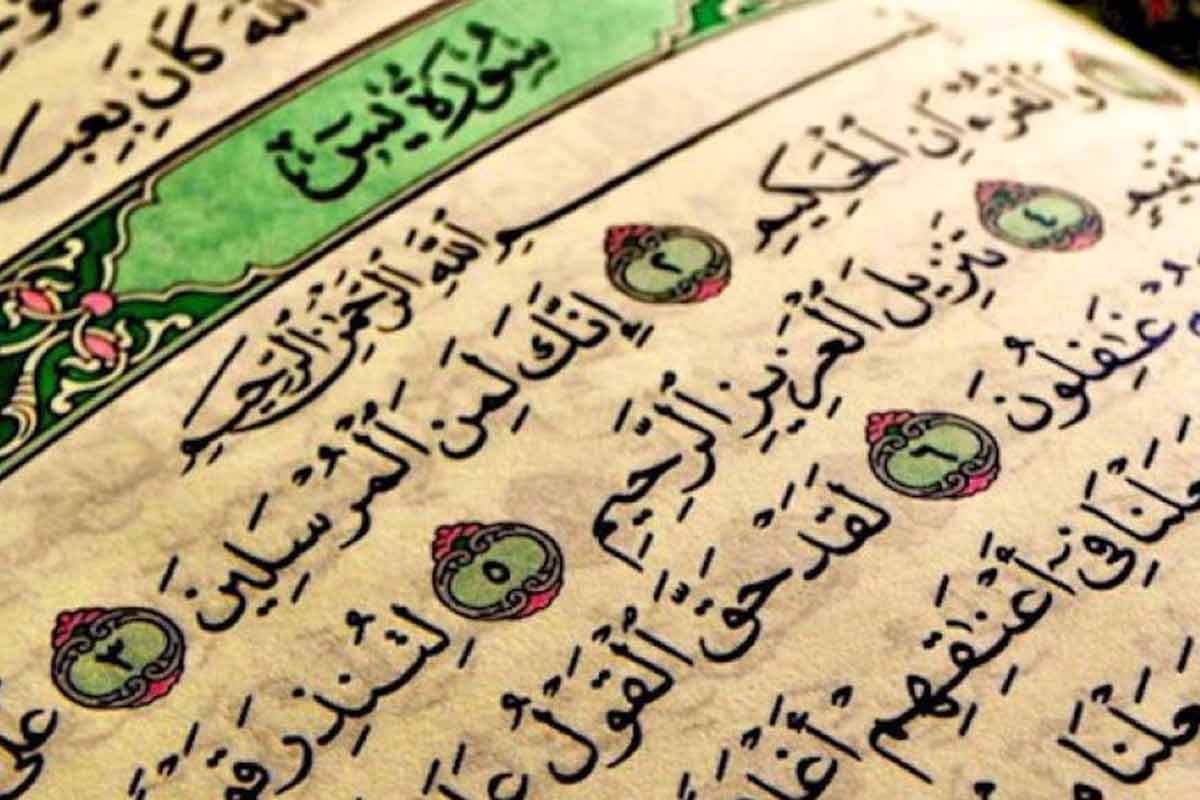 ٱللَّهَ كَانَ بِعِبَ
سُورَةُ يسٓ
بِسْمِ ٱللَّهِ ٱلرَّحْمَٰنِ ٱلرَّحِيمِ
وَٱلْقُرْءَانِ ٱلْحَكِيمِ ٢ إِنَّكَ لَمِنَ ٱلْمُرْسَلِينَ ٣ عَلَى
تَقِيمٍ ٤ تَنزِيلَ ٱلْعَزِيزِ ٱلرَّحِيمِ ٥ لِتُنذِرَ قَوْمً
غَٰفِلُونَ ٦ لَقَدْ حَقَّ ٱلْقَوْلُ عَلَ
عَلْنَا فِىٓ أَعْنَٰقِهِمْ أَغْلَ
عَلْنَا مِ